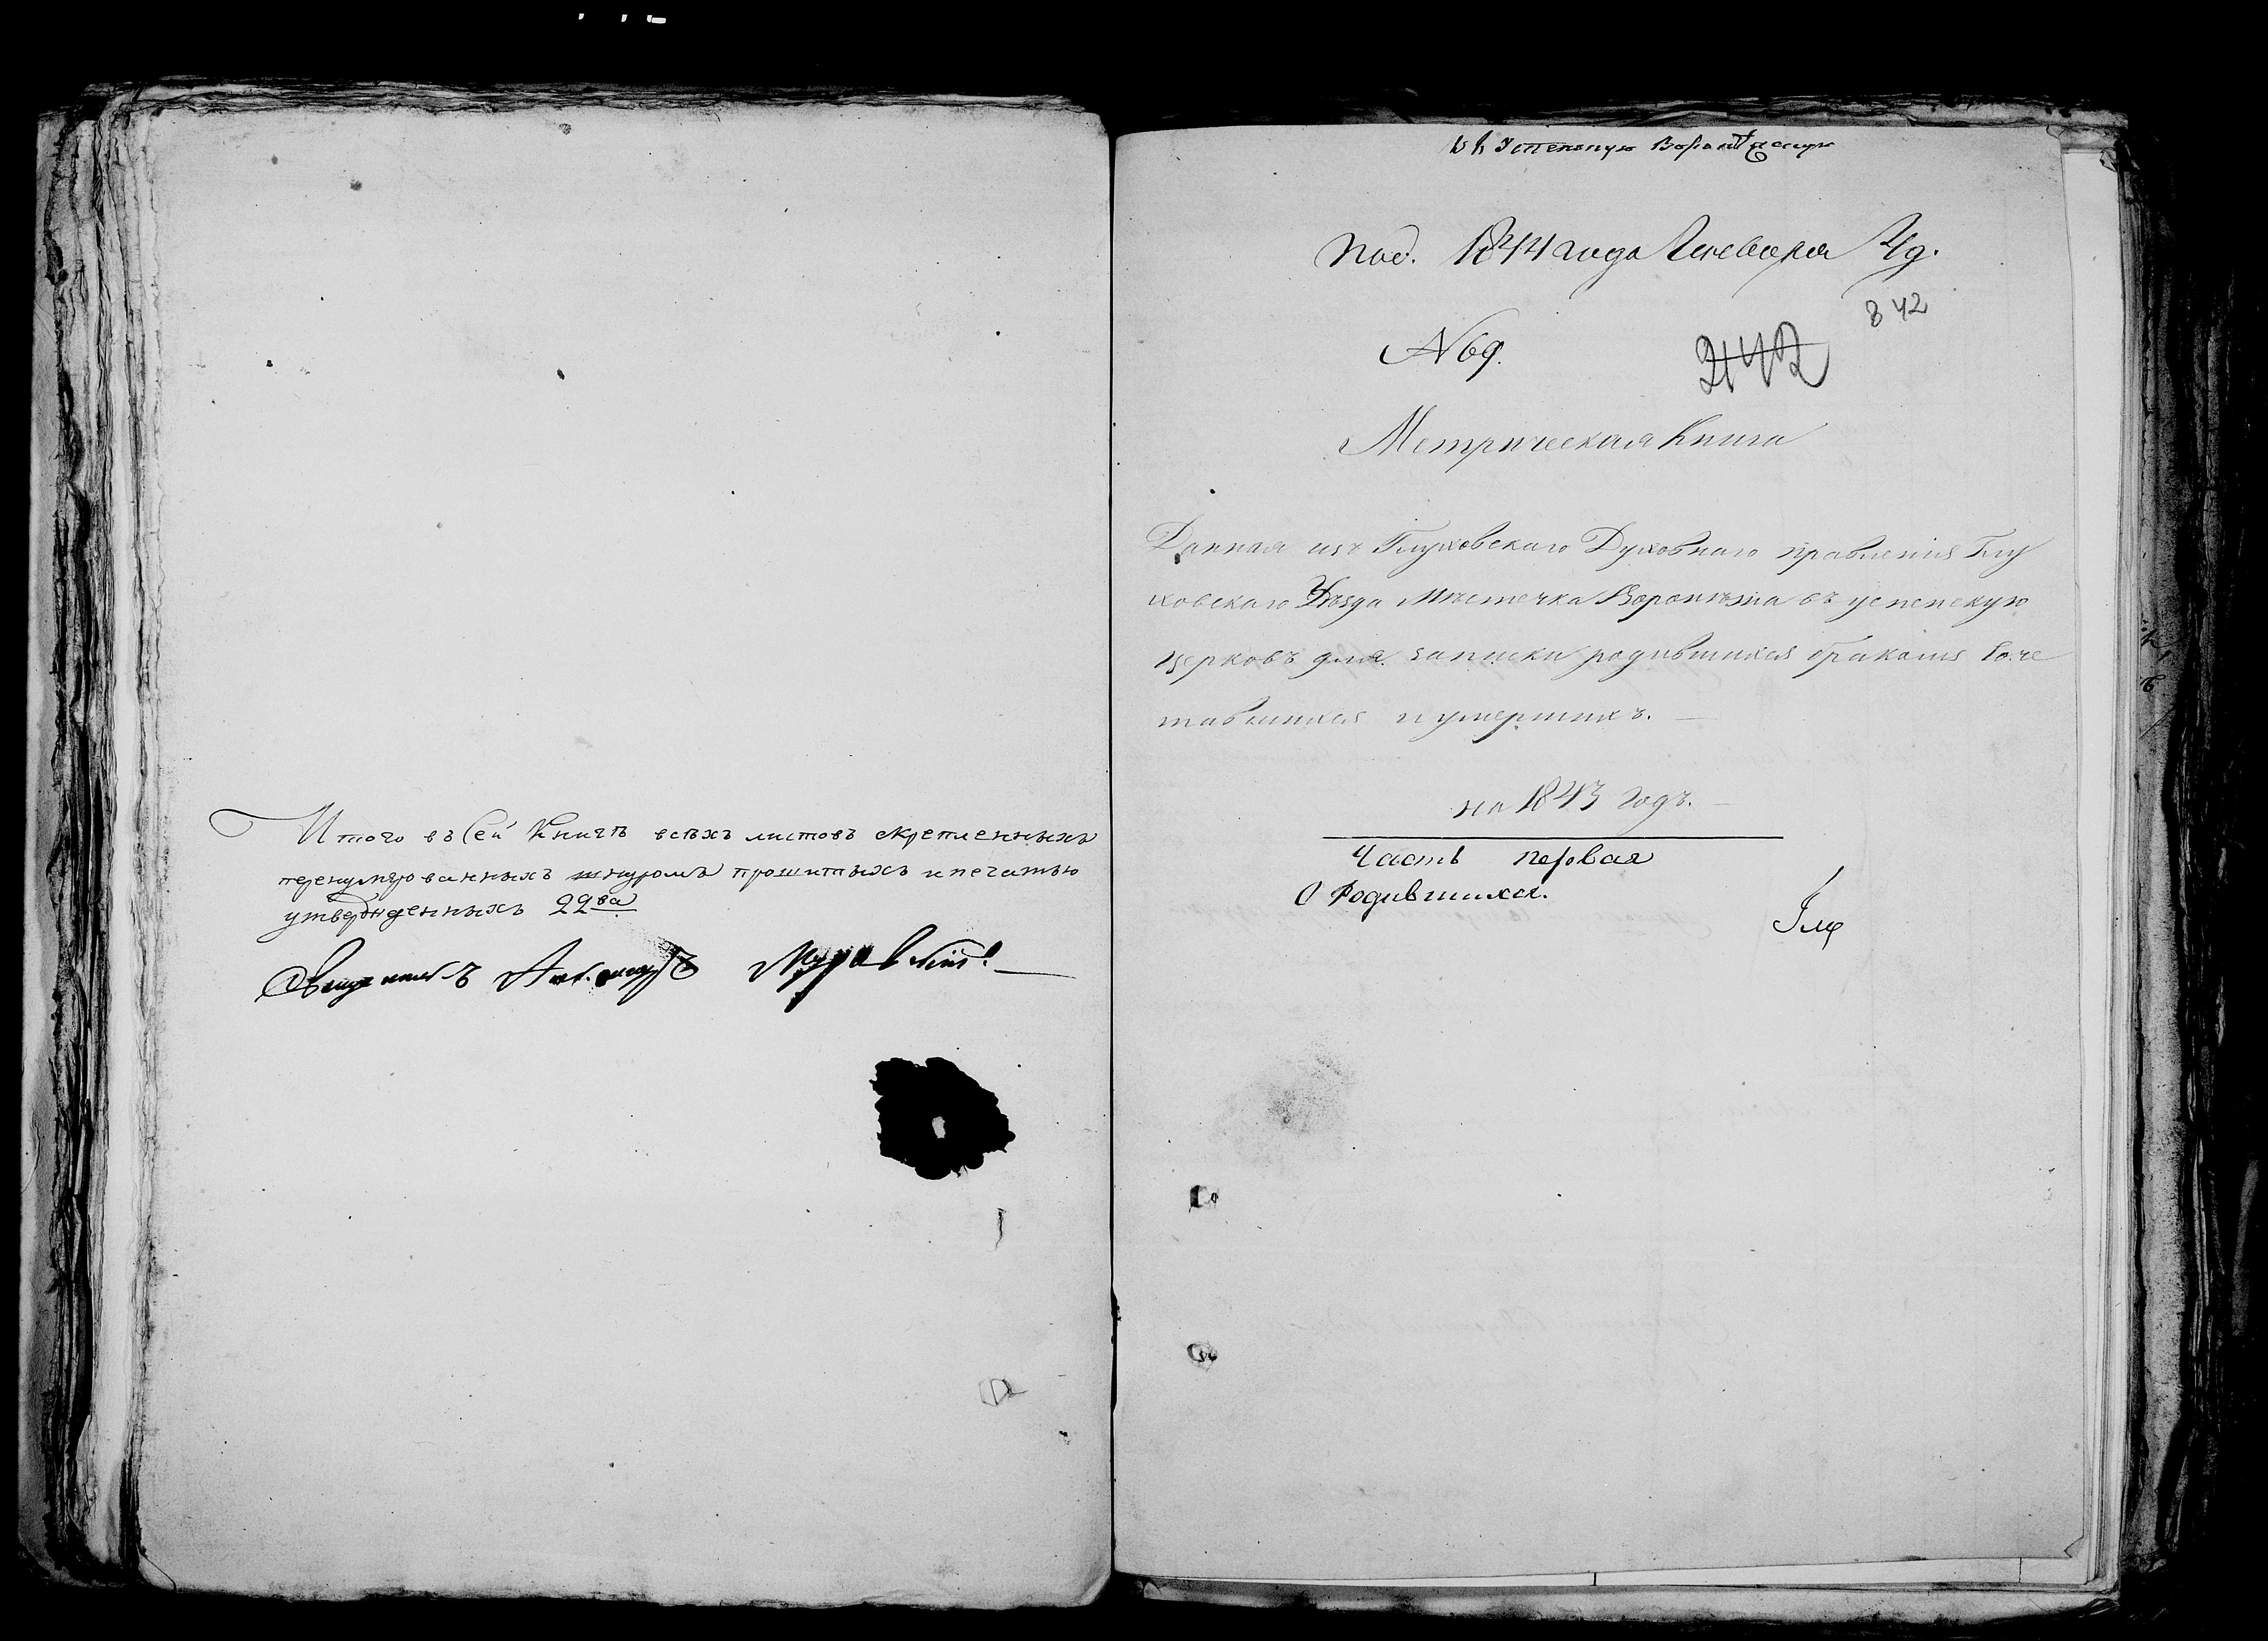 Итого въ Сей Книгѣ всѣхъ листовъ скрепленныхъ
перенумерованныхъ шнуромъ прошитыхъ и печатью
утвержденныхъ 22ва
Въ Успенскую
Пол. 1844 года Генваря 4д.
842
N 69.
242
Метрическая Книга
Данная изъ Глуховскаго Духовнаго правленія Глу
ховскаго Уѣзда Мѣстечка Воронѣжа въ успенскую
церковъ для записки родившихся бракомъ Соче
тавшихся и умершихъ.
на 1843 годъ.
Часть первая
О Родившихся.